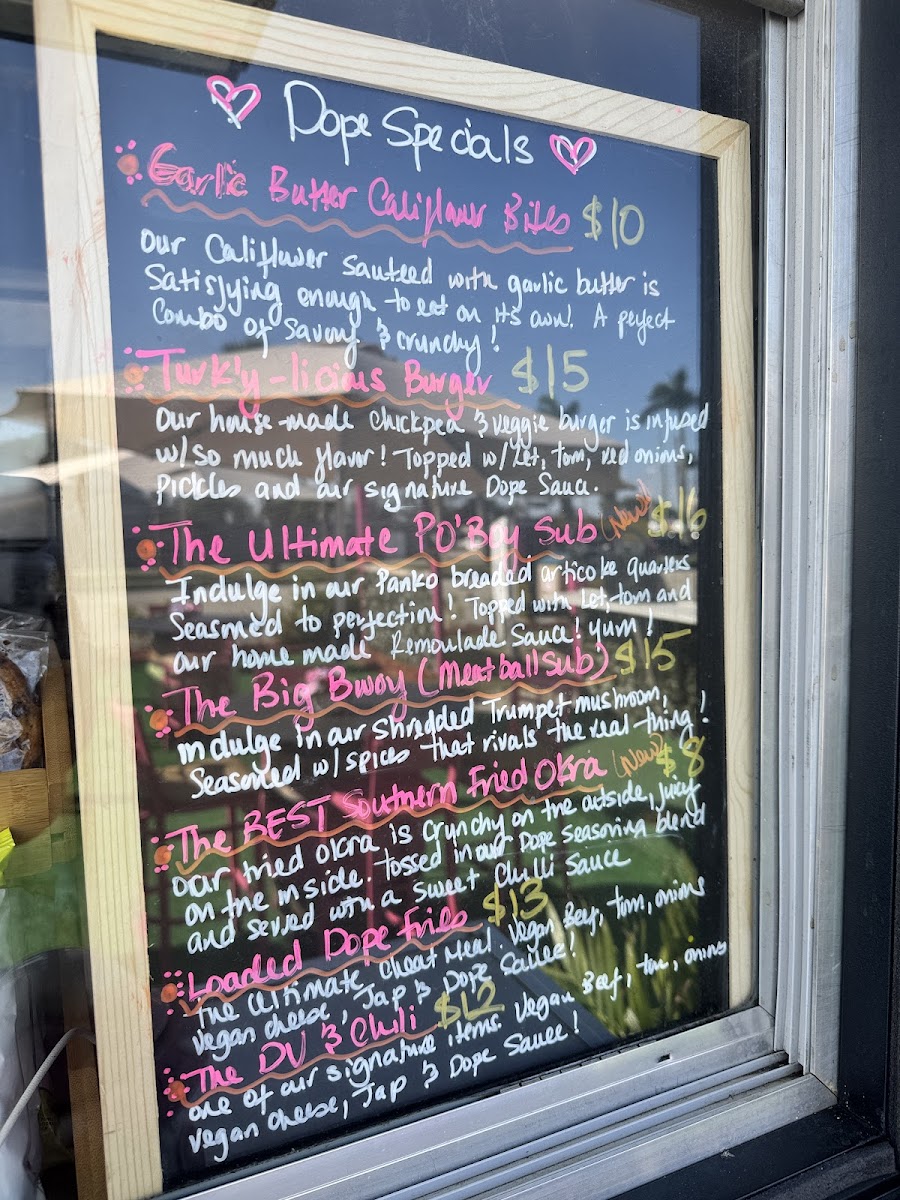 Dope Specials
Garlic Butter Califlowr Bites $10
Our Califlower sauteed with garlic butter is
Satisfying enough to eat on its own! A perfect
Combo of savory & crunchy!
Turk'y-licious Burger $15
Our house-made chickpea & veggie burger is infused
w/ so much flavor! Topped w/ Let, tom, red onions,
Pickles and our signature Dope Sauce.
The Ultimate PO'Boy Sub (New) $16
Indulge in our Panko breaded articoke quarters
Seasoned to perfection! Topped with Let, tom and
our home made Remoulade Sauce! yum!
The Big Bwoy (Meatball Sub) $15
Indulge in our shredded Trumpet mushroom,
Seasoned w/ spices that rivals the real thing!
The BEST Southern Fried Okra (New) $8
our fried okra is crunchy on the outside, juicy
on the inside. tossed in our Dope seasoning blend
and served with a sweet chilli sauce
Loaded Dope Fries $13
The ultimate cheat meal. Vegan Beef, tom, onions
vegan cheese, Jap & Dope Sauce!
The DV & Chili $12
one of our signature items. Vegan Beef, tom, onions
vegan cheese, Jap & Dope Sauce!